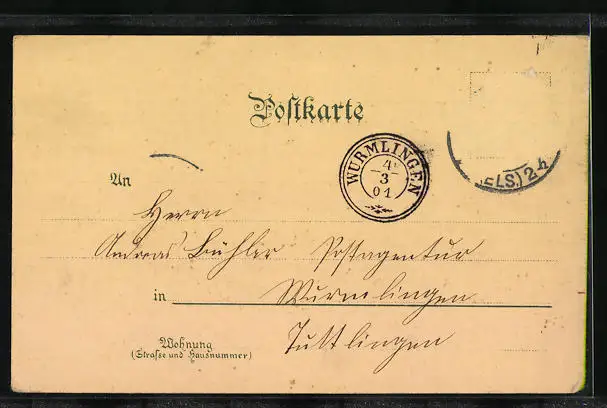 Postkarte
WURMLINGEN
4
3
01
ELS.) 2
An
Herrn
Andreas Bühler Postagentur
in Wurmlingen
Wohnung
(Strasse und Hausnummer)
Tuttlingen